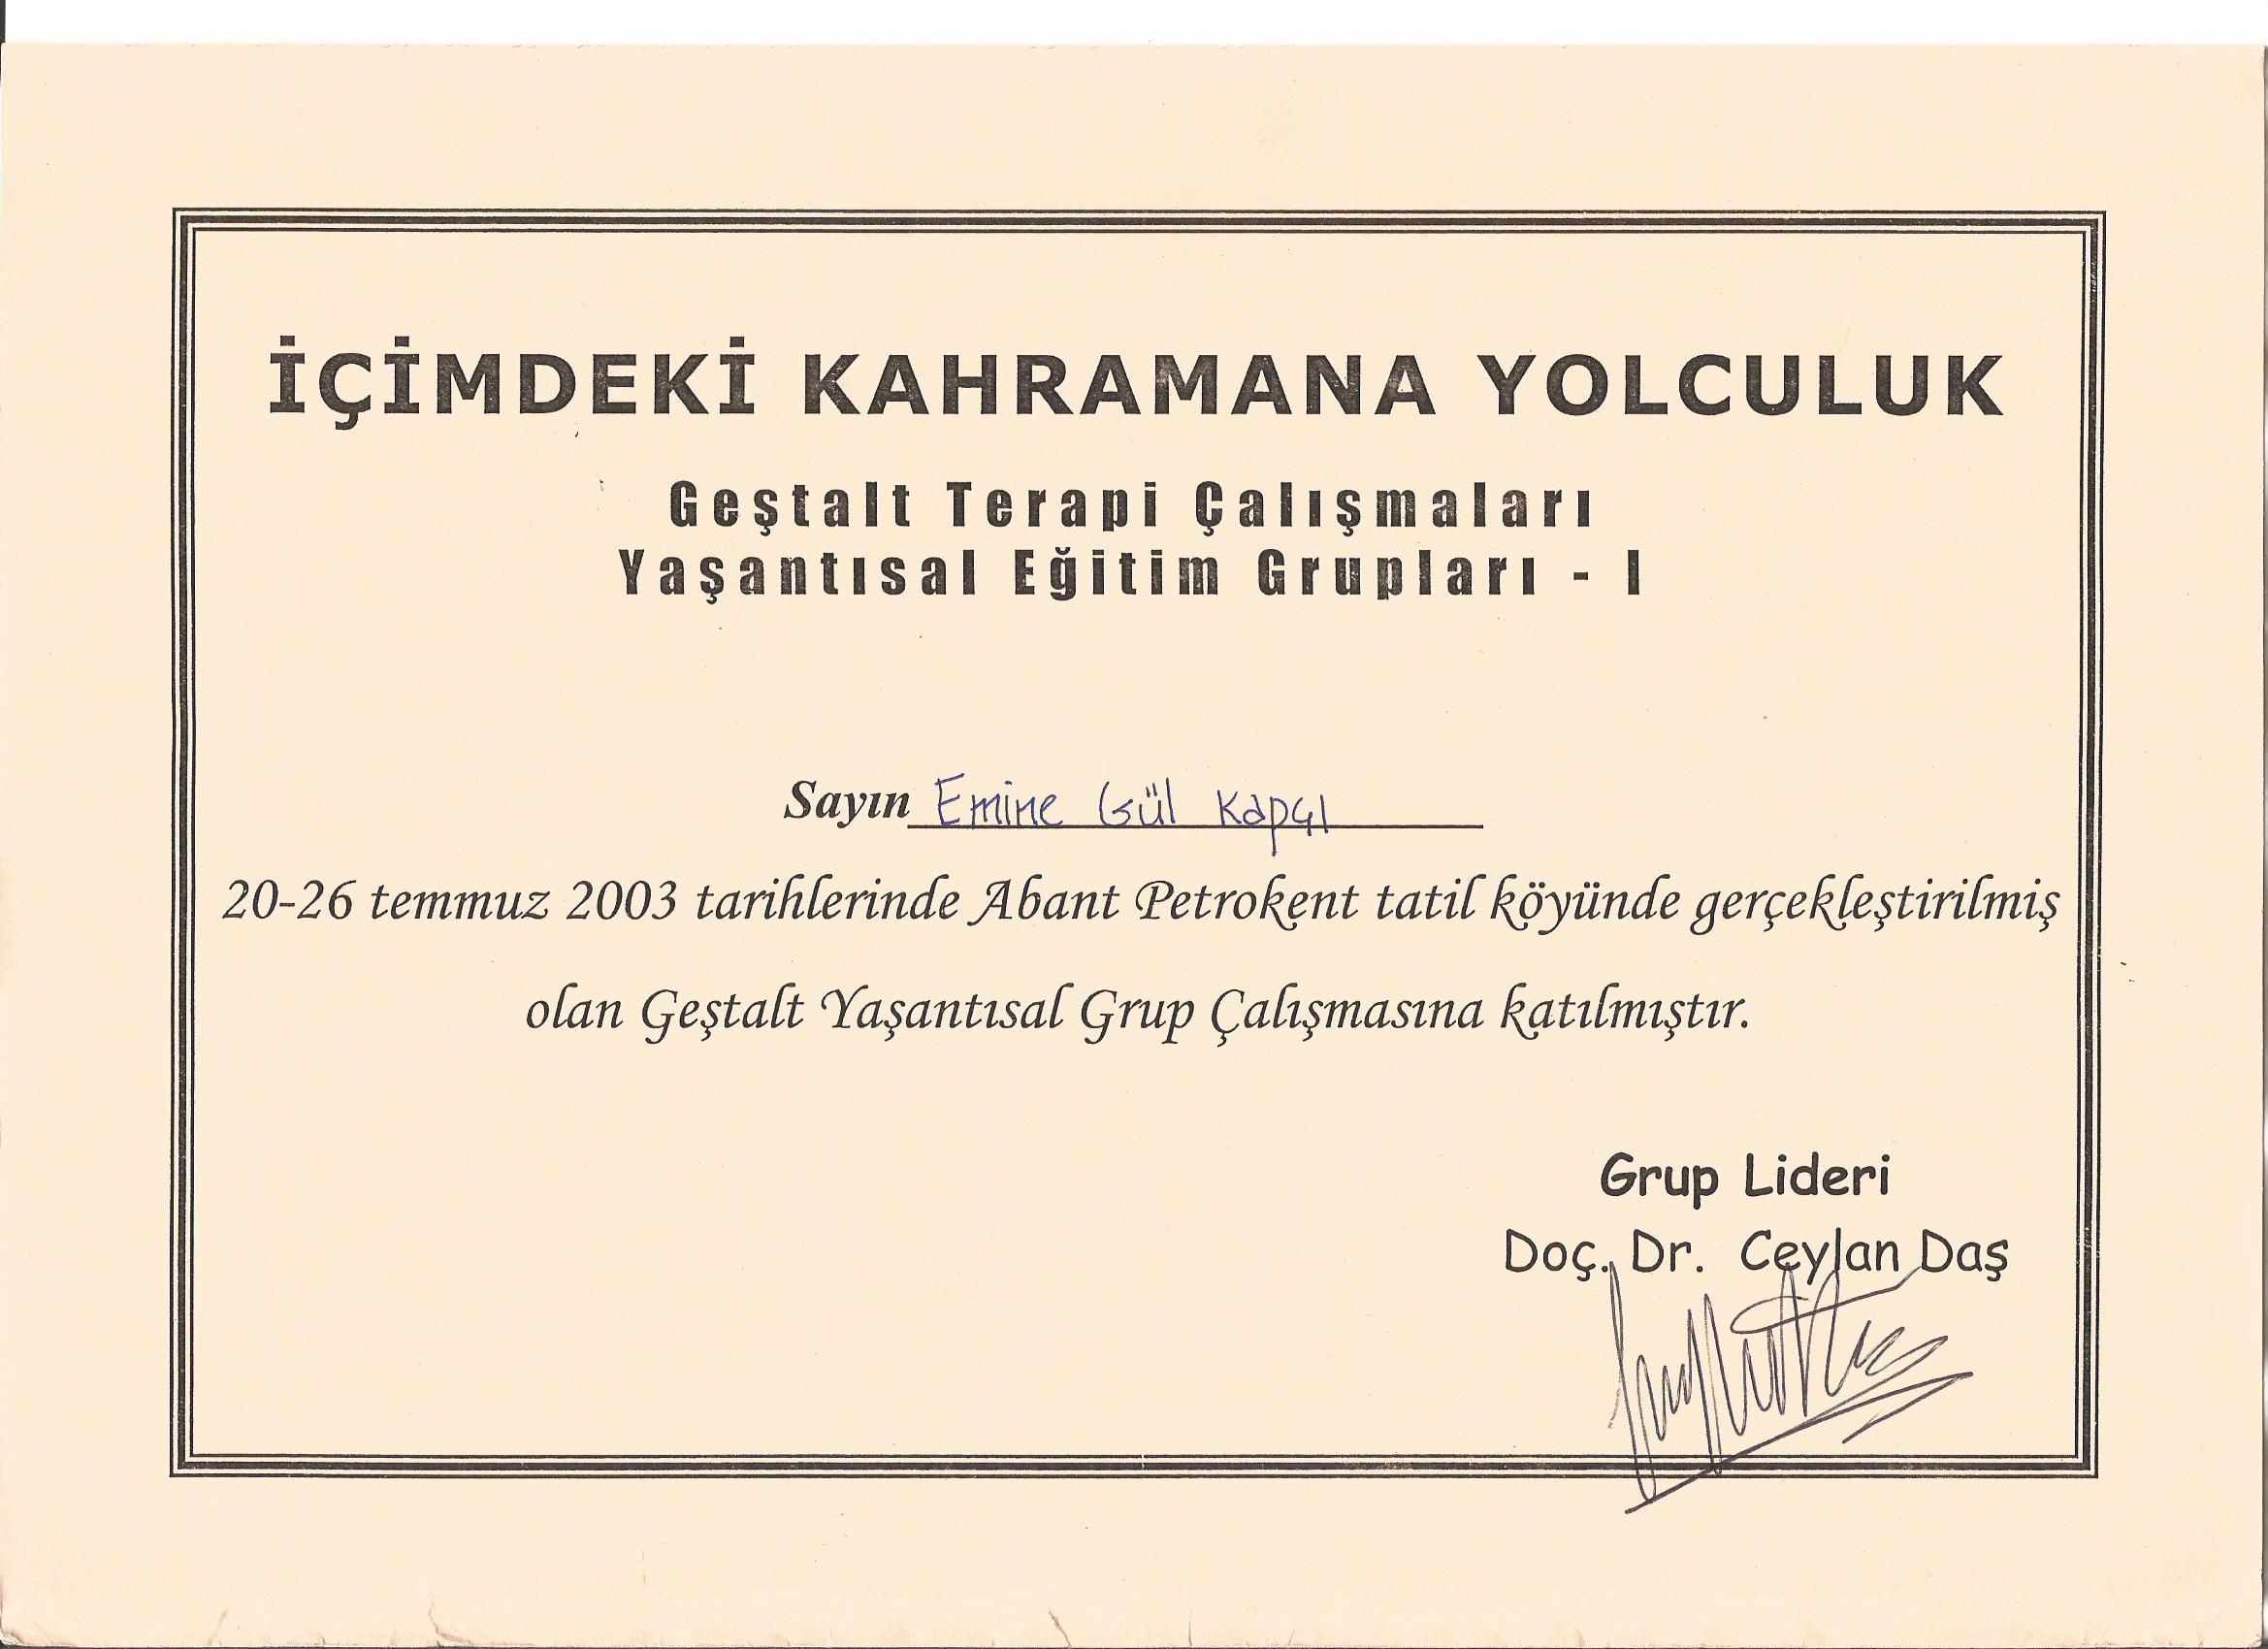 İÇİMDEKİ KAHRAMANA YOLCULUK
Geştalt Terapi Çalışmaları
Yaşantısal Eğitim Grupları - I
Sayın Emine Gül Kapçı
20-26 temmuz 2003 tarihlerinde Abant Petrokent tatil köyünde gerçekleştirilmiş
olan Geştalt Yaşantısal Grup Çalışmasına katılmıştır.
Grup Lideri
Doç. Dr. Ceylan Daş